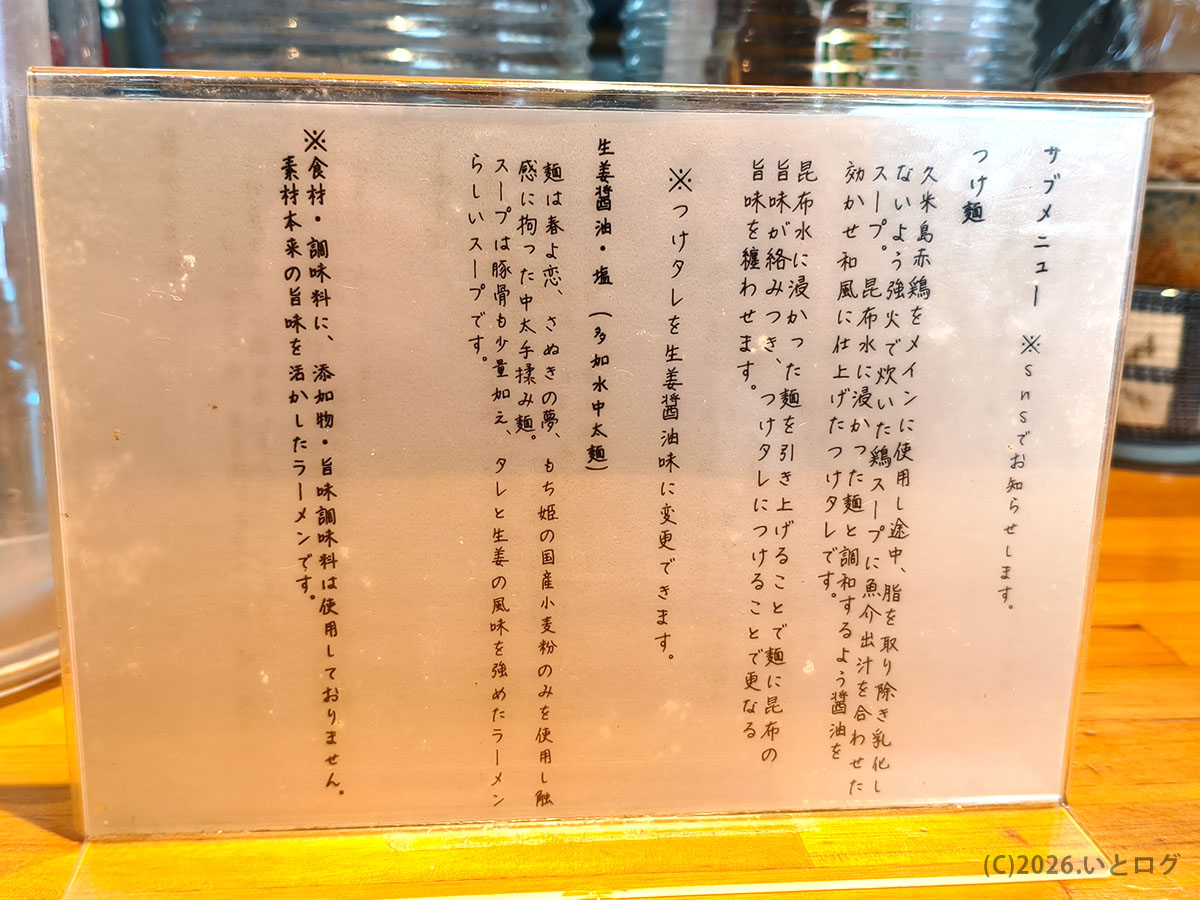 サブメニュー　※snsでお知らせします。
つけ麺
久米島赤鶏をメインに使用し途中、脂を取り除き乳化し
ないよう強火で炊いた鶏スープに魚介出汁を合わせた
スープ。昆布水に浸かった麺と調和するよう醤油を
効かせ和風に仕上げたつけタレです。
昆布水に浸かった麺を引き上げることで麺に昆布の
旨味が絡みつき、つけタレにつけることで更なる
旨味を纏わせます。
※つけタレを生姜醤油味に変更できます。
生姜醤油・塩（多加水中太麺）
麺は春よ恋、さぬきの夢、もち姫の国産小麦粉のみを使用し触
感に拘った中太手揉み麺。
スープは豚骨も少量加え、タレと生姜の風味を強めたラーメン
らしいスープです。
※食材・調味料に、添加物・旨味調味料は使用しておりません。
素材本来の旨味を活かしたラーメンです。
(C)2026.いとログ